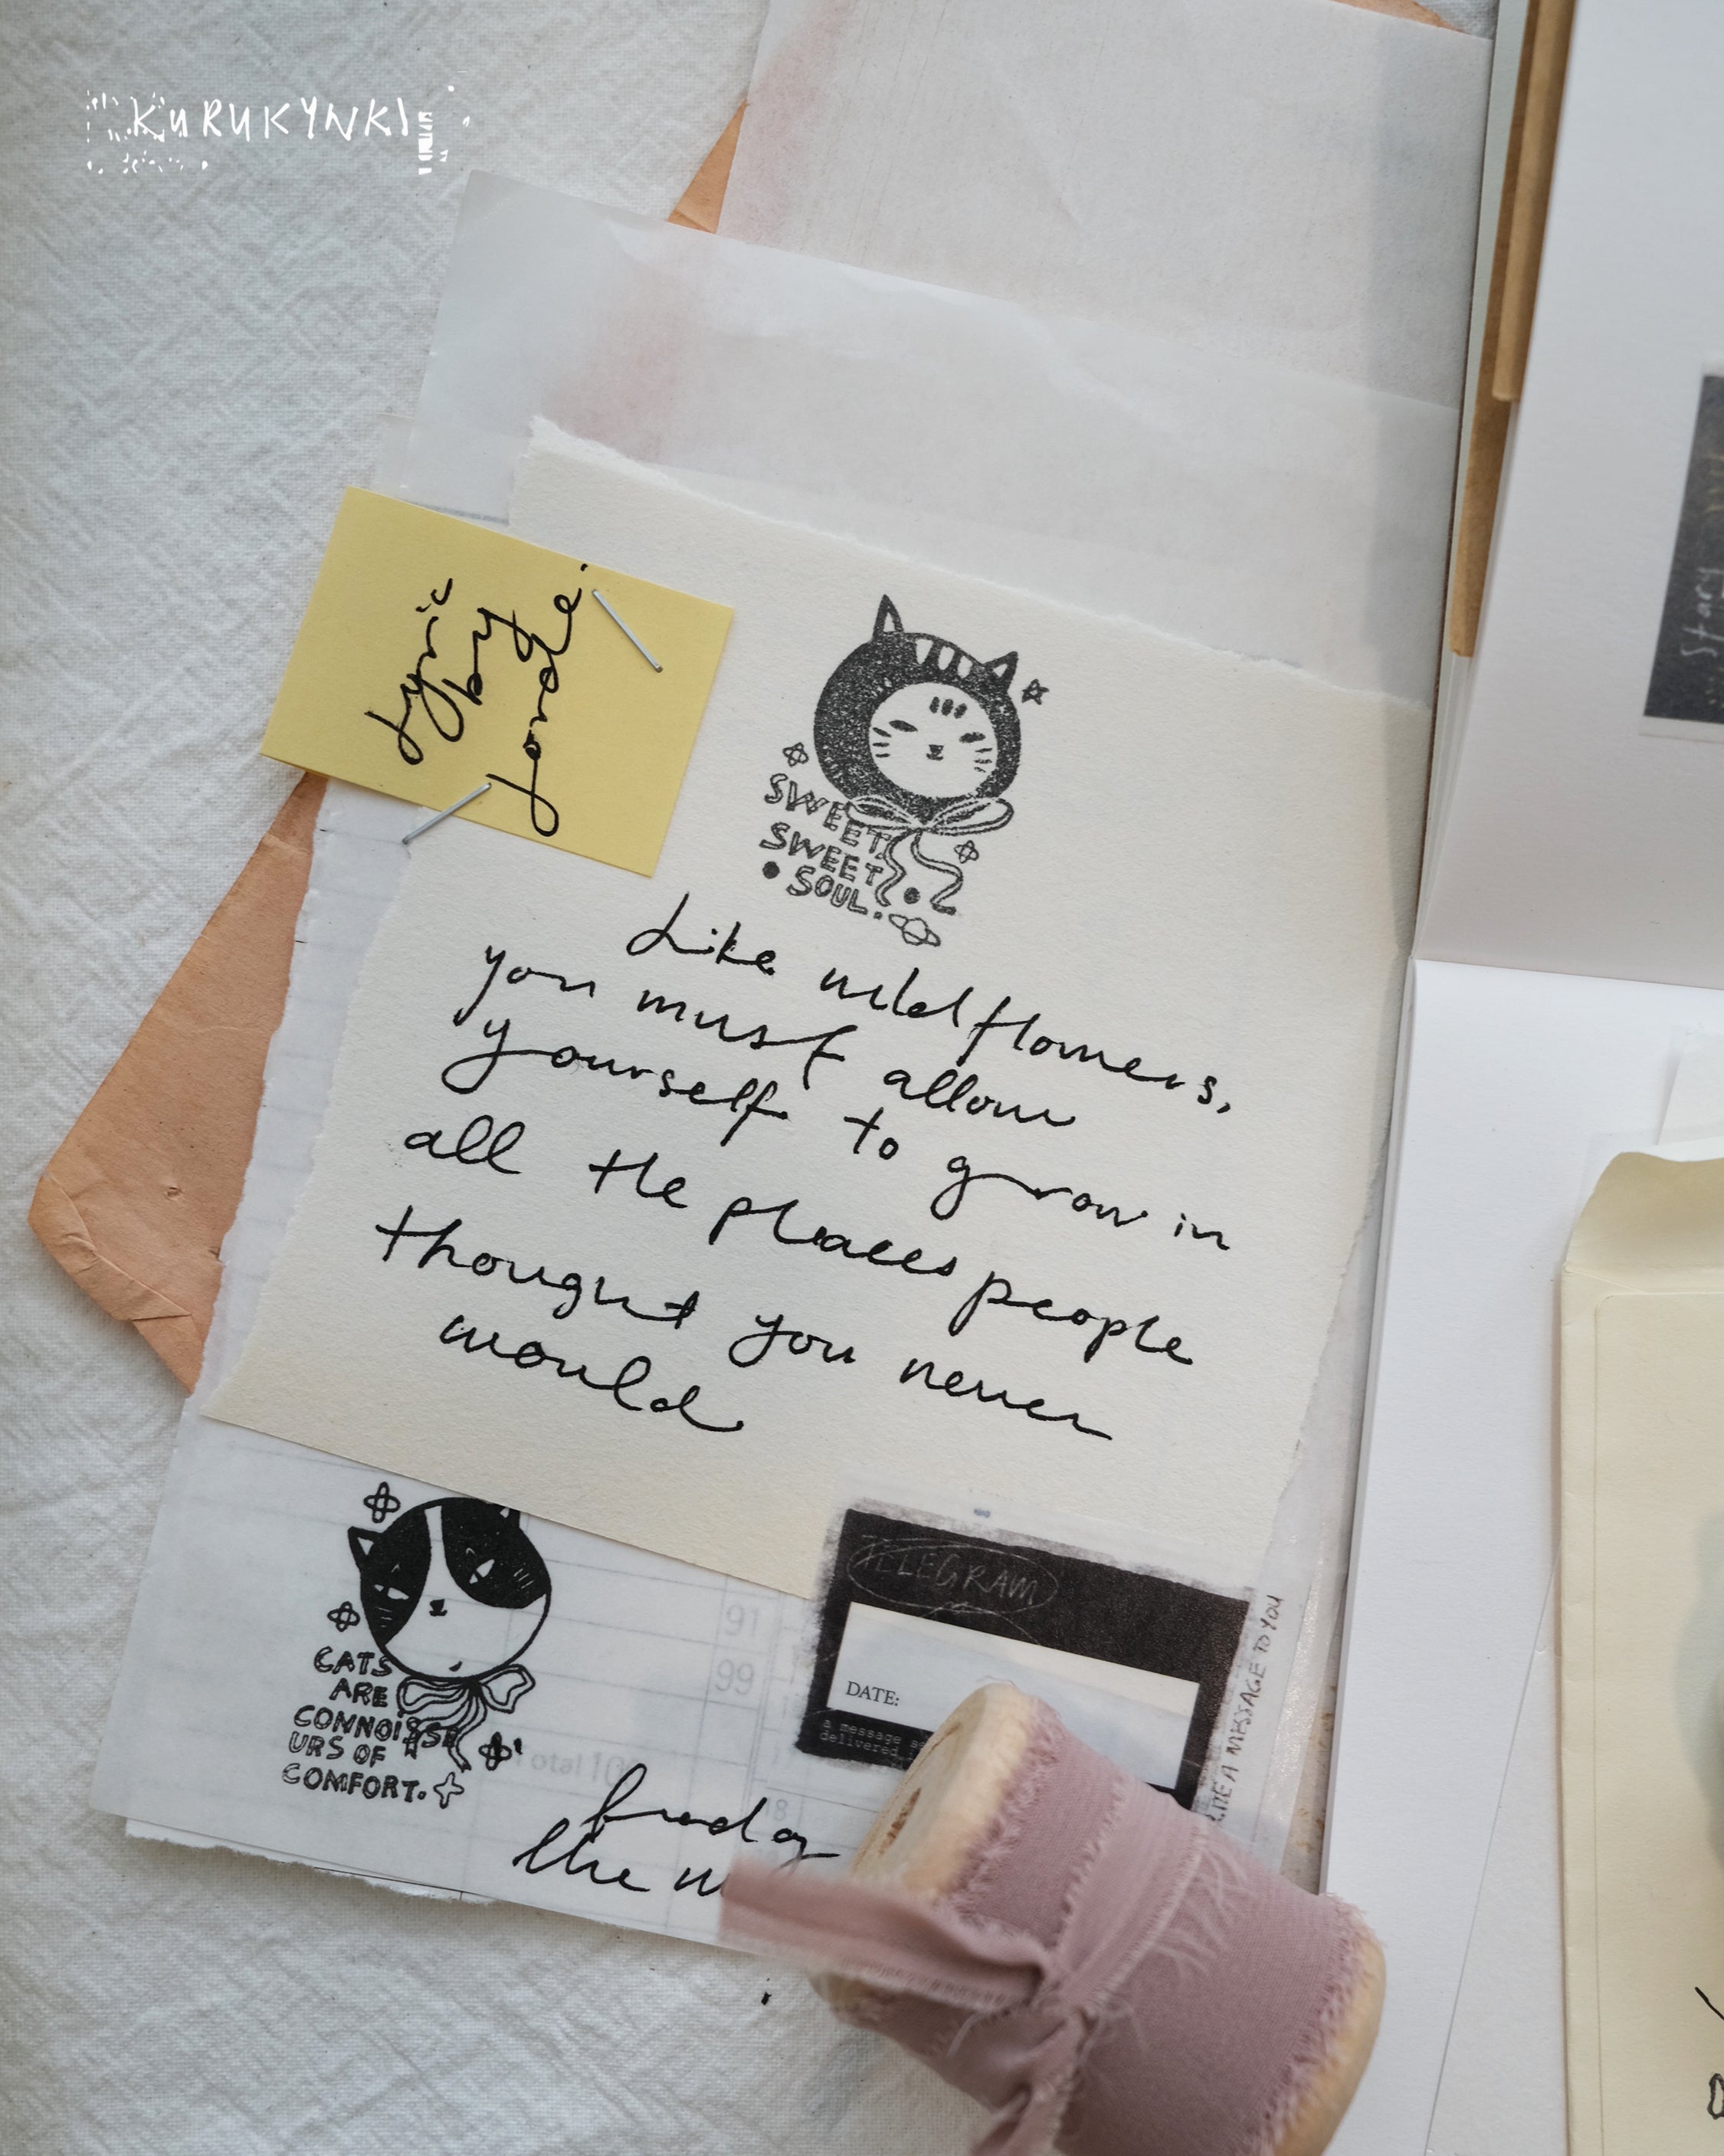 KURUKYNKI
lyric
by
Lorde.
SWEET
SWEET
SOUL.
Like wildflowers,
you must allow
yourself to grow in
all the places people
thought you never
would
CATS
ARE
CONNOISSE
URS OF
COMFORT.
91
99
Total
TELEGRAM
DATE:
a message
delivered
A MESSAGE TO YOU
the